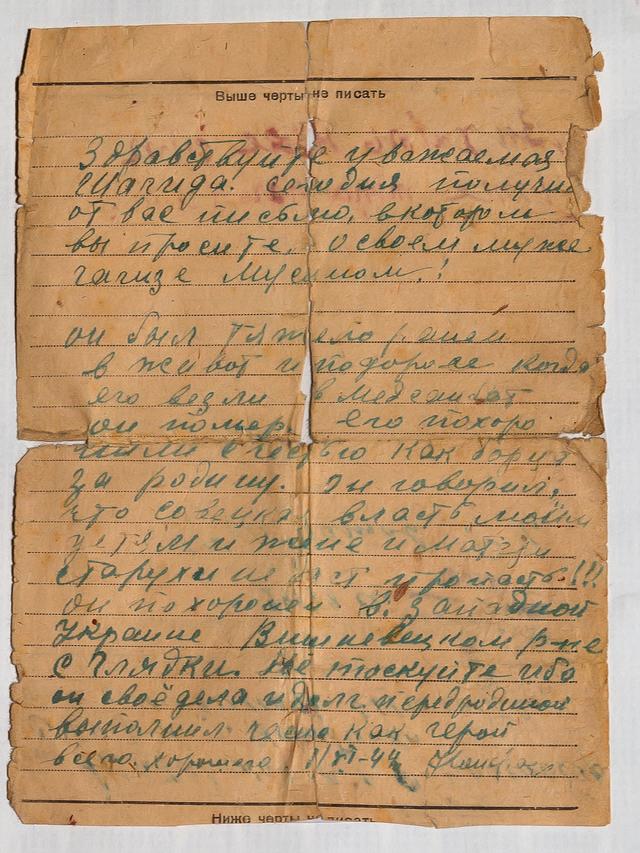 Выше черты не писать
Здравствуйте уважаемая
Шагида. сегодня получил
от вас письмо, в котором
вы просите, о своем муже
гагизе Мусином.!
он был тяжело ранен
в живот и подороге когда
его везли в медсанбат
он помер. Его похоро
нили счестью как борца
за родину. Он говорил,
что совецкая власть моим
детям и жине и матери
старухи не даст пропасть!!!
он похоронен в. западной
Украине Вишневецком р-не
с Глядки. Не тоскуйте ибо
он своё дела и долг передродиной
выполнил честно как герой
всего хорошего. 1/VI-44
Ниже черты не писать